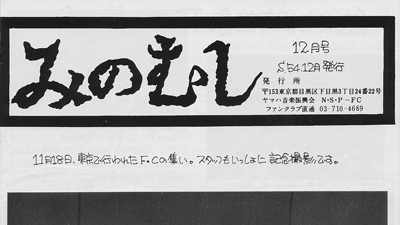 みのむし
12月号
S54.12月発行
発行所
〒153東京都目黒区下目黒3丁目24番22号
ヤマハ音楽振興会 N・S・P－FC
ファンクラブ直通 03-710-4689
11月18日、東京で行われたF・Cの集い。スタッフもいっしょに記念撮影です。